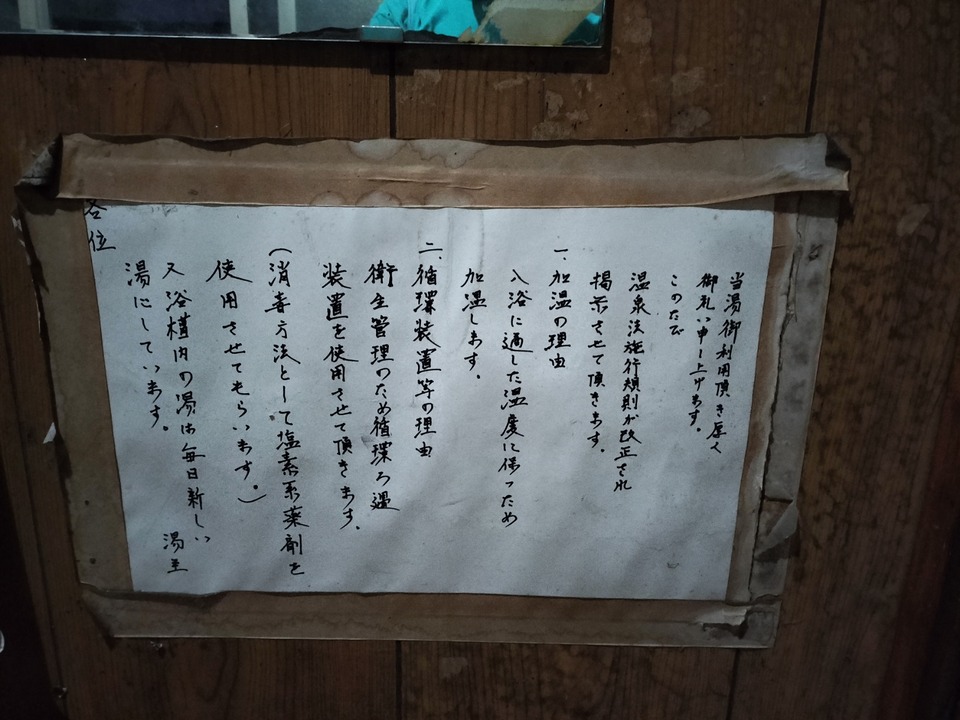 当湯御利用頂き厚く
御礼い申し上げます。
このたび
温泉法施行規則が改正され
掲示させて頂きます。
一、加温の理由
入浴に適した温度に保つため
加温します。
二、循環装置等の理由
衛生管理のため循環ろ過
装置を使用させて頂きます。
(消毒方法として塩素系薬剤を
使用させてもらいます。)
又浴槽内の湯は毎日新しい
湯にしています。
湯主
各位